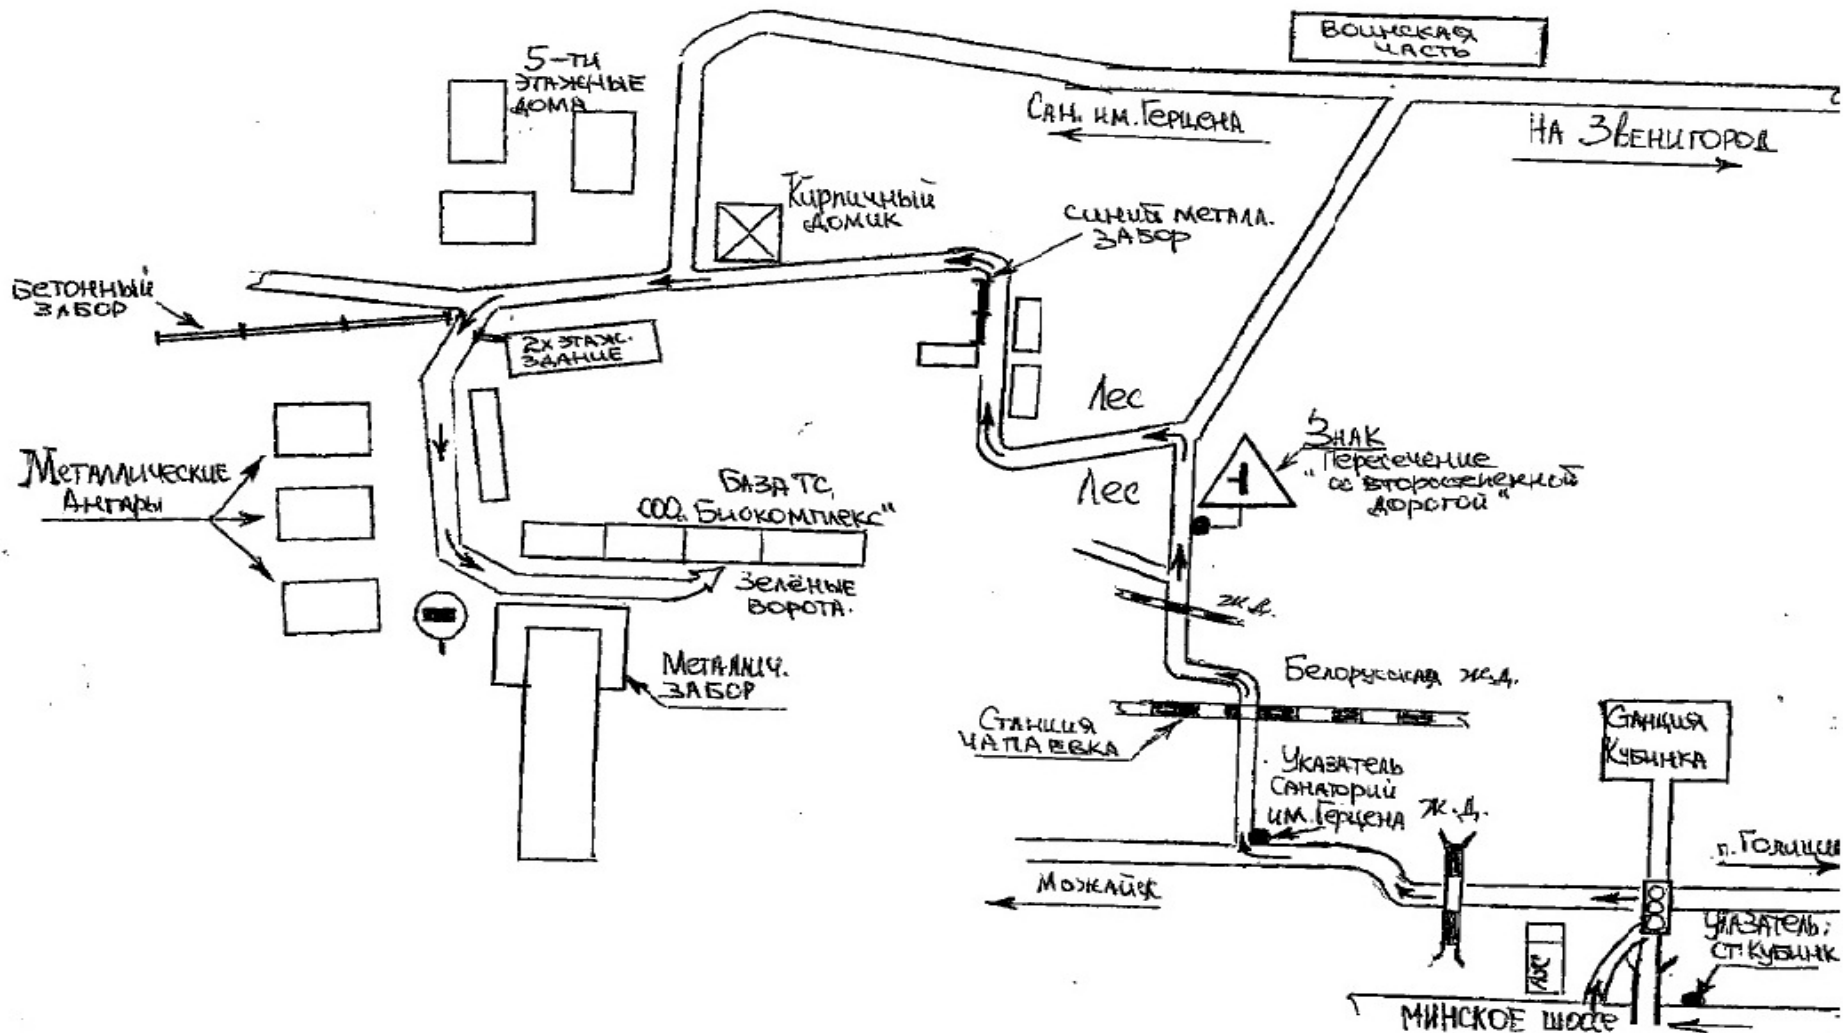 ВОИНСКАЯ
ЧАСТЬ
5-ТИ
ЭТАЖНЫЕ
ДОМА
САН. ИМ. ГЕРЦЕНА
НА ЗВЕНИГОРОД
КИРПИЧНЫЙ
ДОМИК
СИНИЙ МЕТАЛЛ.
ЗАБОР
БЕТОННЫЙ
ЗАБОР
2Х ЭТАЖ.
ЗДАНИЕ
ЛЕС
ЗНАК
"ПЕРЕСЕЧЕНИЕ
СО ВТОРОСТЕПЕННОЙ
ДОРОГОЙ"
МЕТАЛЛИЧЕСКИЕ
АНГАРЫ
БАЗА ТС
ООО "БИОКОМПЛЕКС"
ЛЕС
ЗЕЛЁНЫЕ
ВОРОТА.
Ж.Д.
МЕТАЛЛИЧ.
ЗАБОР
БЕЛОРУССКАЯ Ж.Д.
СТАНЦИЯ
ЧАПАЕВКА
СТАНЦИЯ
КУБИНКА
УКАЗАТЕЛЬ
САНАТОРИЙ
ИМ. ГЕРЦЕНА
Ж.Д.
п. ГОЛИЦИ
МОЖАЙСК
УКАЗАТЕЛЬ:
СТ. КУБИНК
АЗС
МИНСКОЕ ШОССЕ